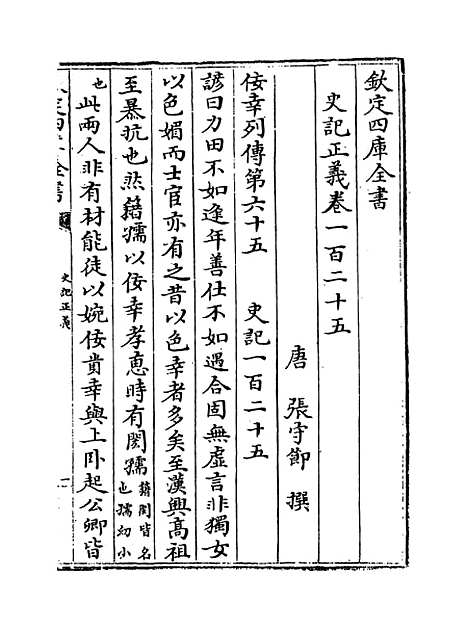 欽定四庫全書
史記正義卷一百二十五
唐 張守節 撰
佞幸列傳第六十五 史記一百二十五
諺曰力田不如逢年善仕不如遇合固無虛言非獨女
以色媚而士宦亦有之昔以色幸者多矣至漢興高祖
至暴抗也然籍孺以佞幸孝惠時有閎孺籍閎皆名也孺幼小
也此兩人非有材能徒以婉佞貴幸與上卧起公卿皆
史記正義
一